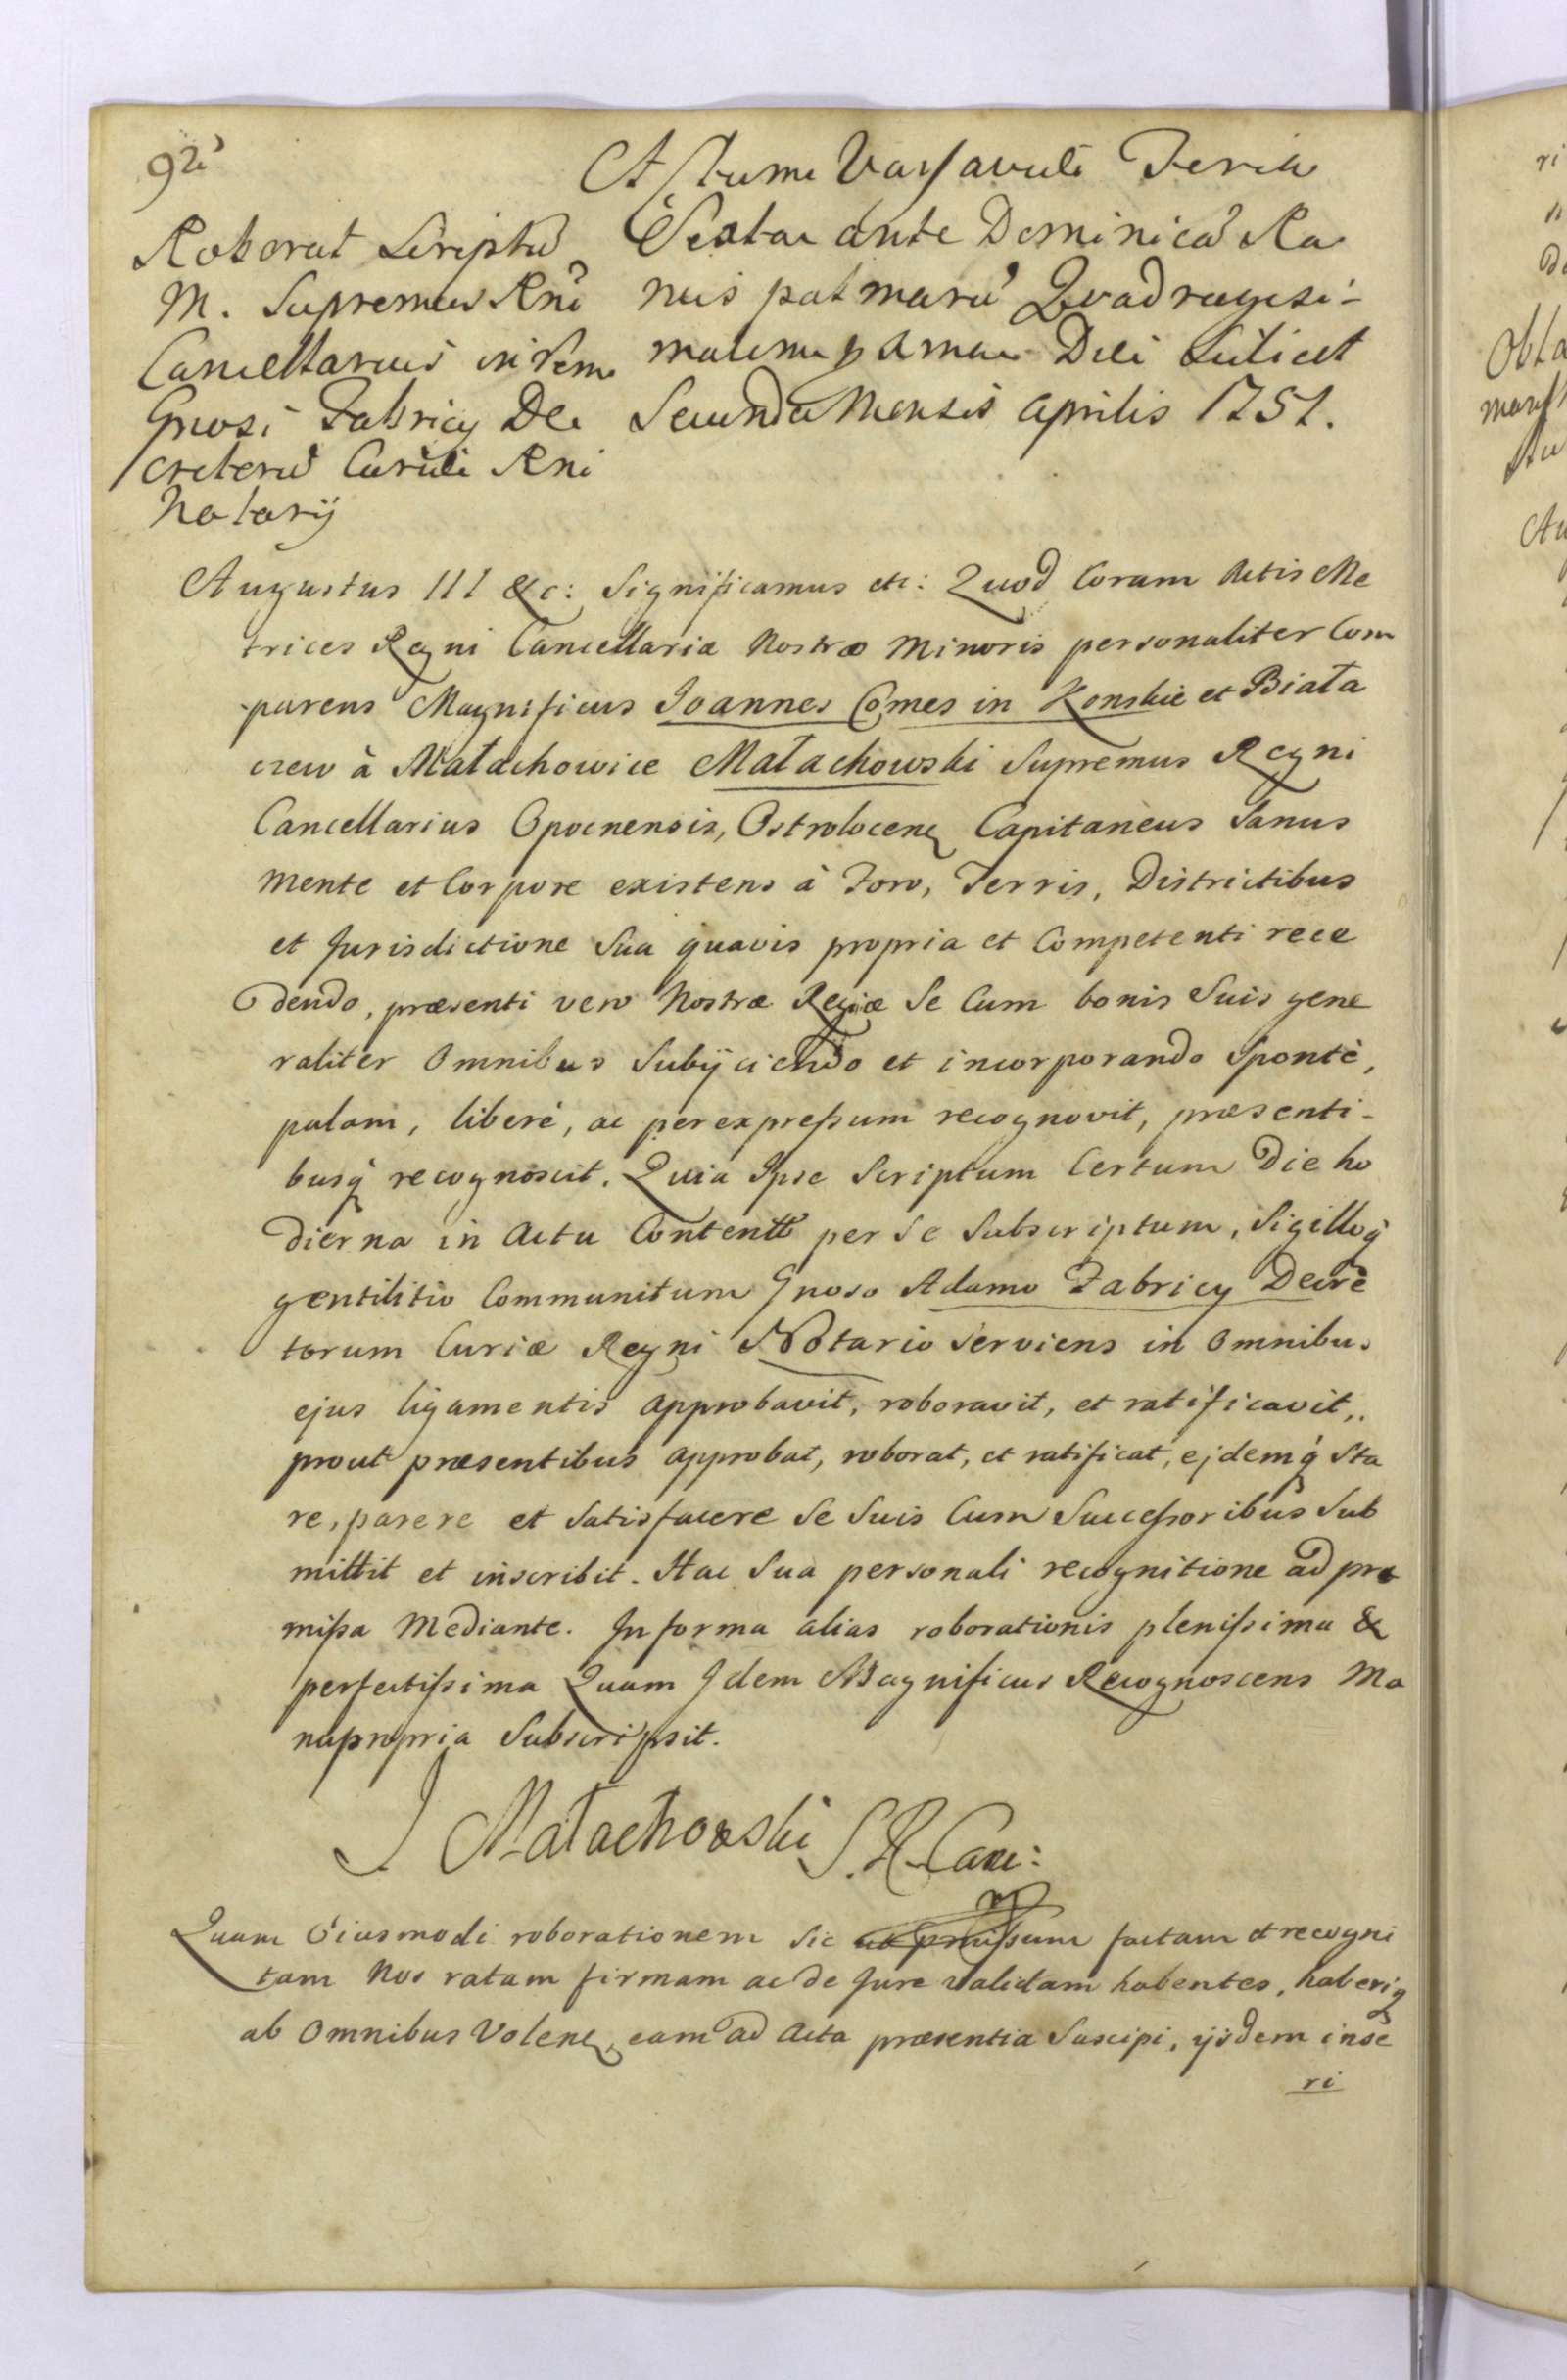 92
Roborat Scriptu
M. Supremus Rni
Cancellarius in rem
Gnosi Fabricy De
cretoru Curiæ Rni
Notarÿ
Actum Varsaviæ Feria
Sexta ante Dominică Ra
mis palmarŭ Quadragesi-
malem Die Scilicet
Secunda Mensis Aprilis 1751.
Augustus III &c: Significamus etc: Quod Coram Actis Me
trices Regni Cancellariæ Nostræ Minoris personaliter Com
parens Magnificus Joannes Comes in Konskie et Biała
czew à Małachowice Małachowski Supremus Regni
Cancellarius Opocnensis, Ostrolocenq Capitaneus Sanus
mente et Corpore existens à Foro, Terris, Districtibus
et Jurisdictione Sua quavis propria et Competenti rece
dendo, præsenti vero Nostræ Regiæ Se Cum bonis Suis gene
raliter Omnibus Subÿciendo et incorporando Spontè,
palam, liberè, ac per expressum recognovit, præsenti-
busq recognoscit. Quia Ipse Scriptum Certum Die ho
dierna in Actu Content per Se Subscriptum, Sigilloq
gentilitio Communitum Gnoso Adamo Fabricy Decre
torum Curiæ Regni Notario Serviens in Omnibus
ejus ligamentis approbavit, roboravit, et ratificavit,
prout præsentibus approbat, roborat, et ratificat, ejdemq Sta
re, parere et Satisfacere Se Suis Cum Successoribus Sub
mittit et inscribit. Hac Sua personali recognitione ad præ
missa Mediante. In forma alias roborationis plenissima &
perfectissima Quam Idem Magnificus Recognoscens Ma
nupropria Subscripsit.
J Małachowski S. R. Canc:
Quam Eiusmodi roborationem Sic factam et recogni
tam Nos ratam firmam ac de Jure validam habentes, haberiq
ab Omnibus Volenq, eam ad Acta præsentia Suscipi, ÿsdem inse
ri